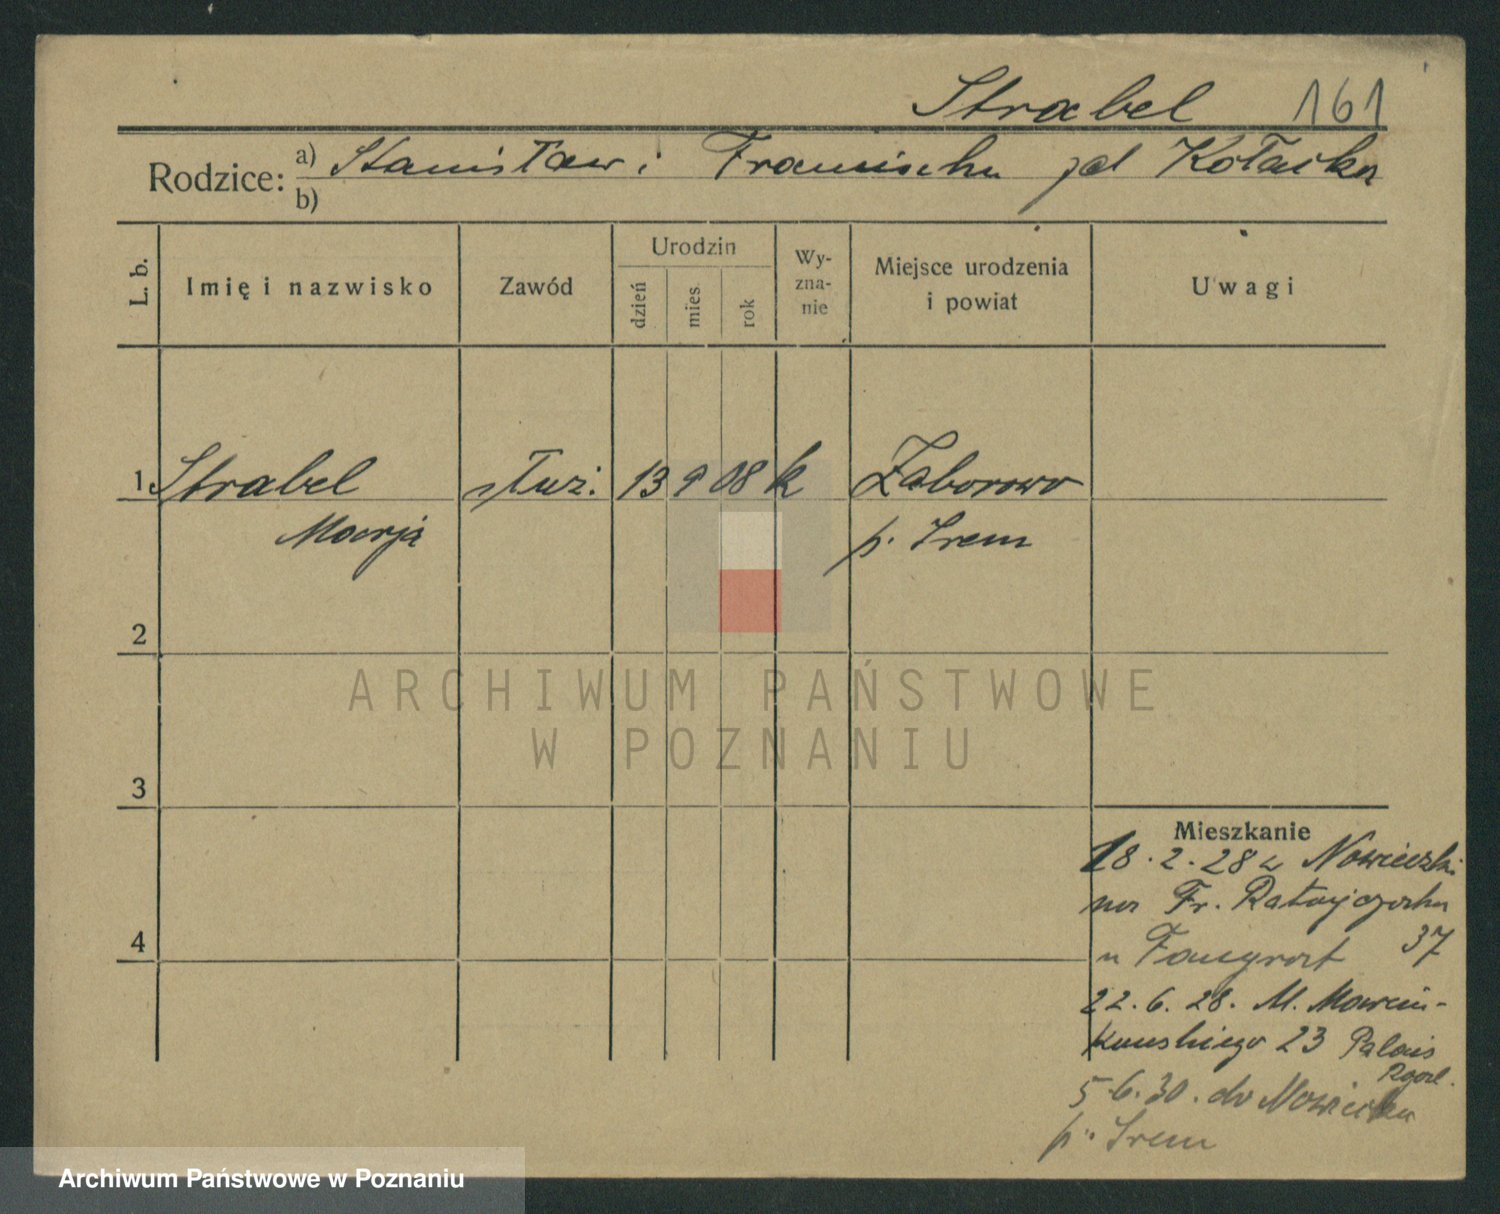 Strabel 161
Rodzice: a) Stanisław i Franciszka zd Kołacka
b)
L. b. Imię i nazwisko Zawód Urodzin dzień mies. rok Wy-zna-nie Miejsce urodzenia i powiat Uwagi
1. Strabel służ. 13 9 08 k Zaborowo
Marja p. Śrem
2
ARCHIWUM PAŃSTWOWE
W POZNANIU
3
Mieszkanie
18.2.28 z
na Fr. Ratajczaka
u 37
4
22.6.28. M. Marcin-
kowskiego 23 Palais
5.6.30. do
p. Śrem
Archiwum Państwowe w Poznaniu